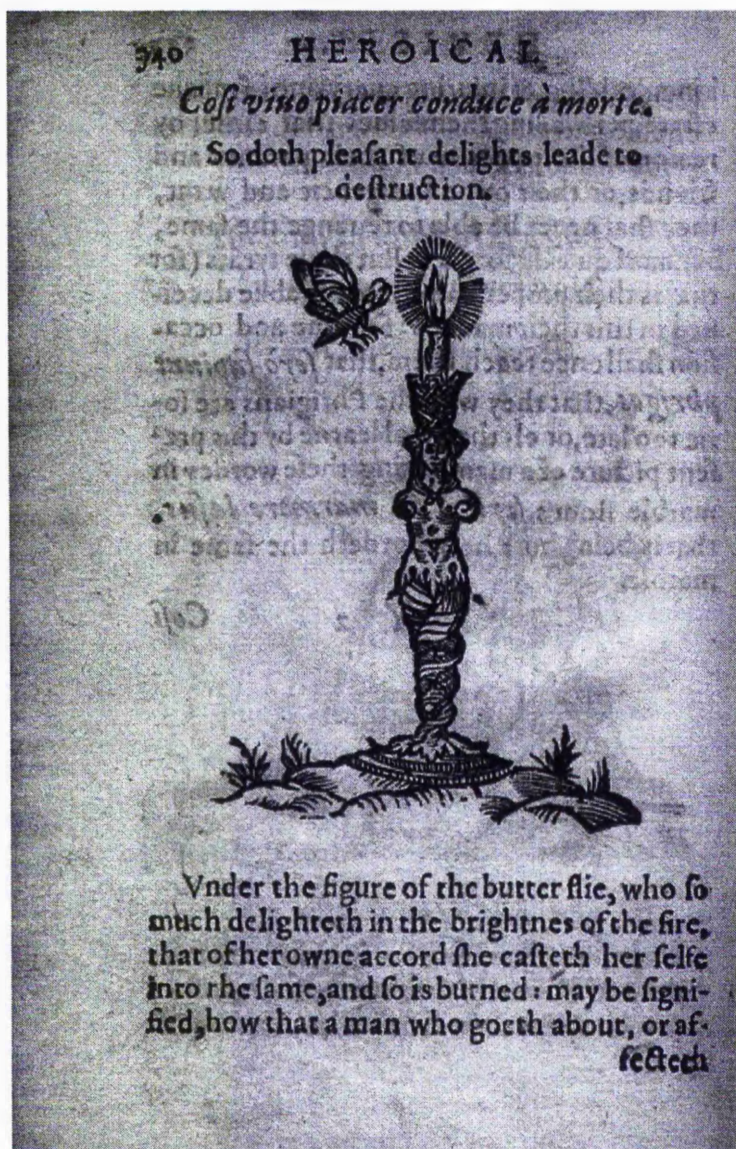 340 HEROICAL
Coſi viuo piacer conduce à morte.
So doth pleaſant delights leade to
deſtruction.
Vnder the figure of the butter flie, who ſo
much delighteth in the brightnes of the fire,
that of her owne accord ſhe caſteth her ſelfe
into the ſame, and ſo is burned: may be ſigni-
fied, how that a man who goeth about, or af-
fecteth